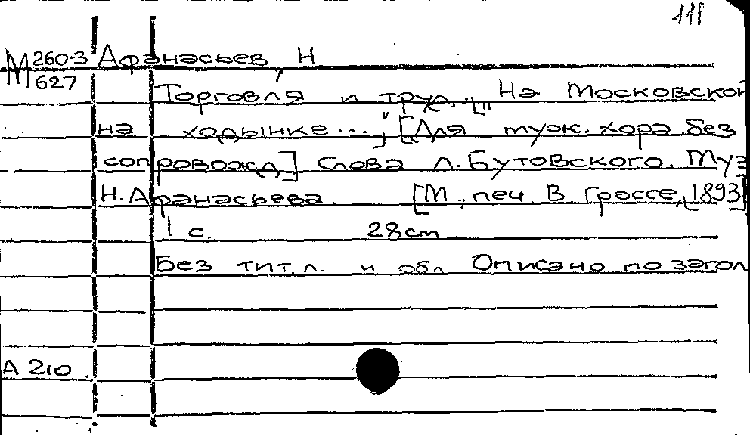 118
М 260-3 Афанасьев, Н
627
Торговля и труд. ["На Московской
на ходынке..."; [Для муж. хора без
сопровожд.] Слова Л. Бутовского. Муз
Н. Афанасьева. [М., печ. В. Гроссе, 1893]
1 с. 28 cm
Без тит. л. и обл. Описано по загол
А 210